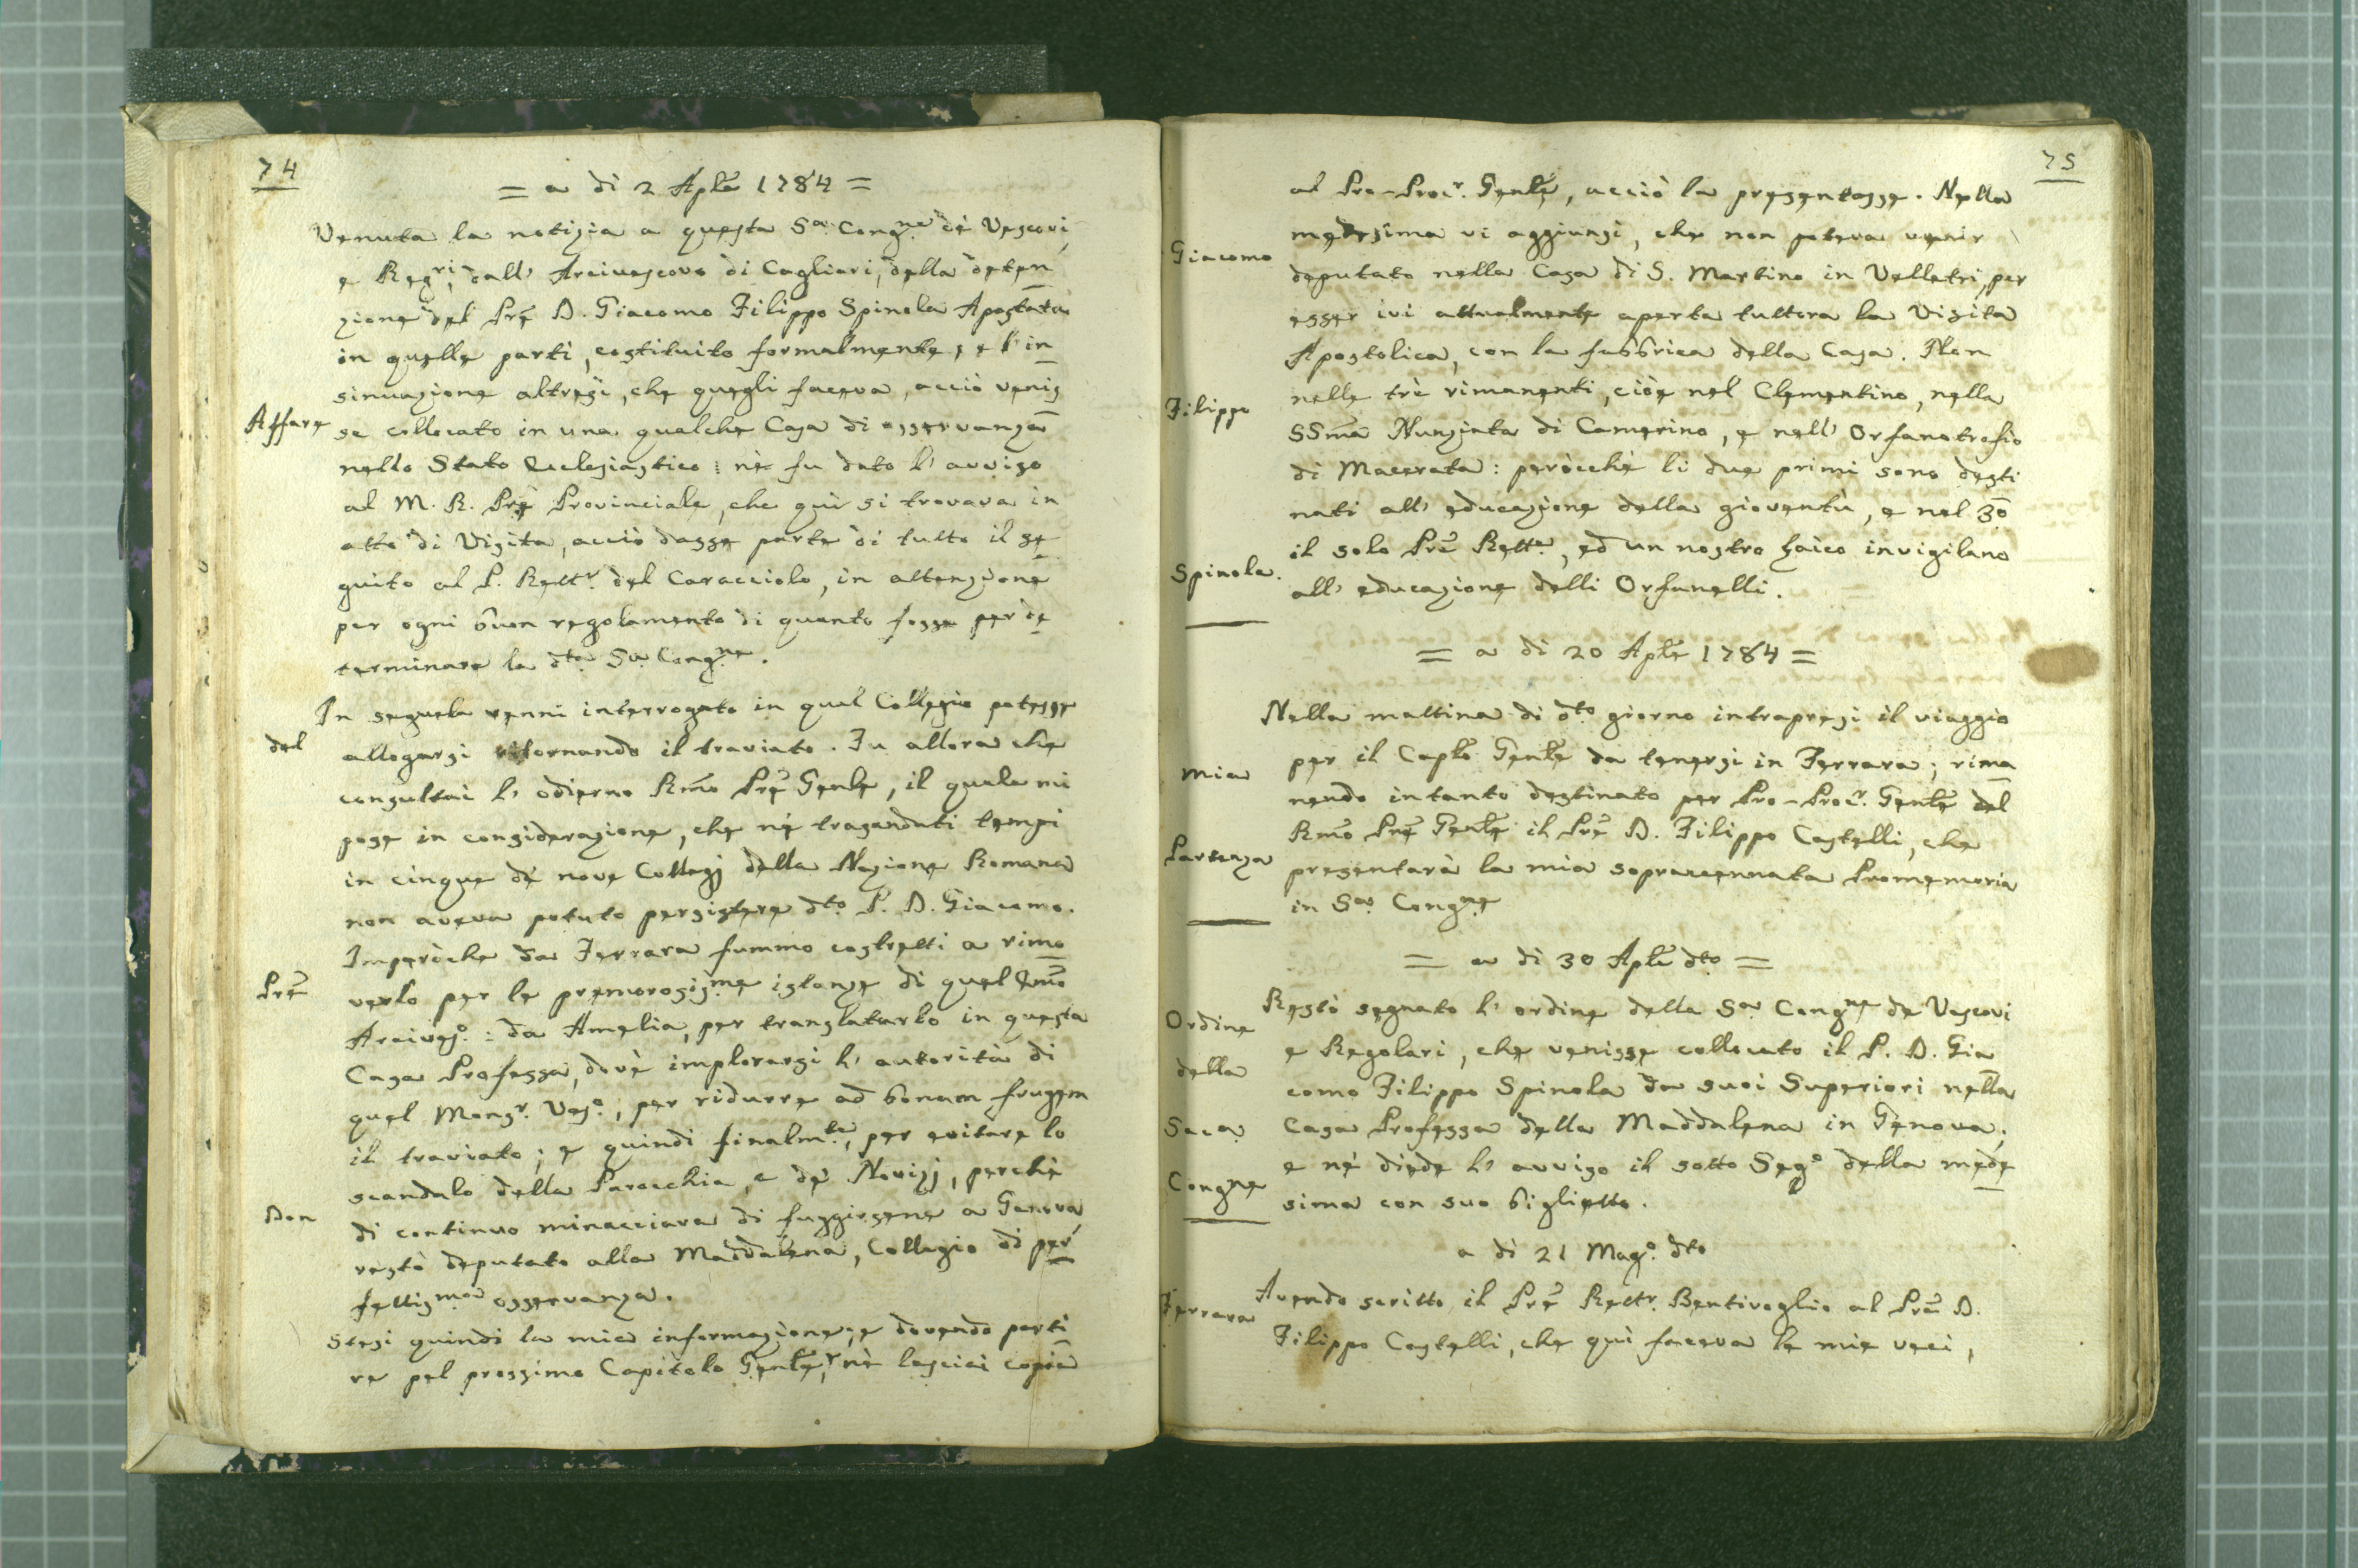 74
= a di 2 Aple 1784 =
Venuta la notizia a questa Sa Congne de Vescovi,
e Regri, dall' Arcivescovo di Cagliari, della deten
zione del Pre D. Giacomo Filippo Spinola Apostata
in quelle parti, costituito formalmente, e l'in
sinuazione altresi, che quegli faceva, acciò venis
Affare
se collocato in una qualche Casa di osservanza
nello Stato Ecclesiastico: nè fu dato l'avviso
al M. R. Pre Provinciale, che quì si trovava in
atto di Visita, acciò dasse parte di tutto il se
guito al P. Rettr. del Caracciolo, in attenzione
per ogni buon regolamento di quanto fosse per de
terminare la dta Sa Congne.
In seguela venni interrogato in qual Collegio potesse
del
allogarsi ritornando il traviato. Fu allora che
consultai l'odierno Rmo Pre Genle, il quale mi
pose in considerazione, che né trasandati tempi
in cinque dé nove Collegj della Nazione Romana
non aveva potuto persistere dto P. D. Giacomo.
Imperòche da Ferrara fummo costretti a rimo
Pre
verlo per le premorosisme istanze di quel Emo
Arcivo.: da Amelia, per translatarlo in questa
Casa Professa, dovè implorarsi l'autorità di
quel Monsr. Veso., per ridurre ad bonam frugem
il traviato; e quindi finalmte, per evitare lo
scandalo della Parocchia, e dé Novizj, perchè
Don
di continuo minacciava di fuggirsene a Genova,
restò deputato alla Maddalena, Collegio di per
fettisma osservanza.
Stesi quindi la mia informazione, e dovendo parti
re pel prossimo Capitolo Genle, nè lasciai copia
75
al Pro-Procr. Genle, acciò la presentasse. Nella
medesima vi aggiunsi, che non poteva venir
Giacomo
deputato nella Casa di S. Martino in Velletri, per
esser ivi attualmente aperta tuttora la Visita
Apostolica, con la fabbrica della Casa. Non
nelle trè rimanenti, ciòe nel Clementino, nella
Filippo
SSma Nunziata di Camerino, e nell' Orfanotrofio
di Macerata: peròcchè li due primi sono desti
nati all' educazione della gioventù, e nel 3o
il solo Pre Rette, ed un nostro Laico invigilano
Spinola.
all' educazione delli Orfanelli.
= a di 20 Aple 1784 =
Nella mattina di dto giorno intrapresi il viaggio
per il Caplo Genle da tenersi in Ferrara; rima
Mia
nendo intanto destinato per Pro-Procr. Genle del
Rmo Pre Genle il Pre D. Filippo Castelli, che
Partenza
presentarà la mia sopraccennata Promemoria
in Sa Congne
= a di 30 Aple dto =
Restò segnato l'ordine della Sa Congne de Vescovi
Ordine
e Regolari, che venisse collocato il P. D. Gia
della
como Filippo Spinola da suoi Superiori nella
Saca
Casa Professa della Maddalena in Genova;
e né diede l'avviso il sotto Sego della mede
Congne
sima con suo biglietto.
a di 21 Mago. dto
Avendo scritto il Pre Rettr. Bentivoglio al Pre D.
Ferrara
Filippo Castelli, che quì faceva le mie veci,